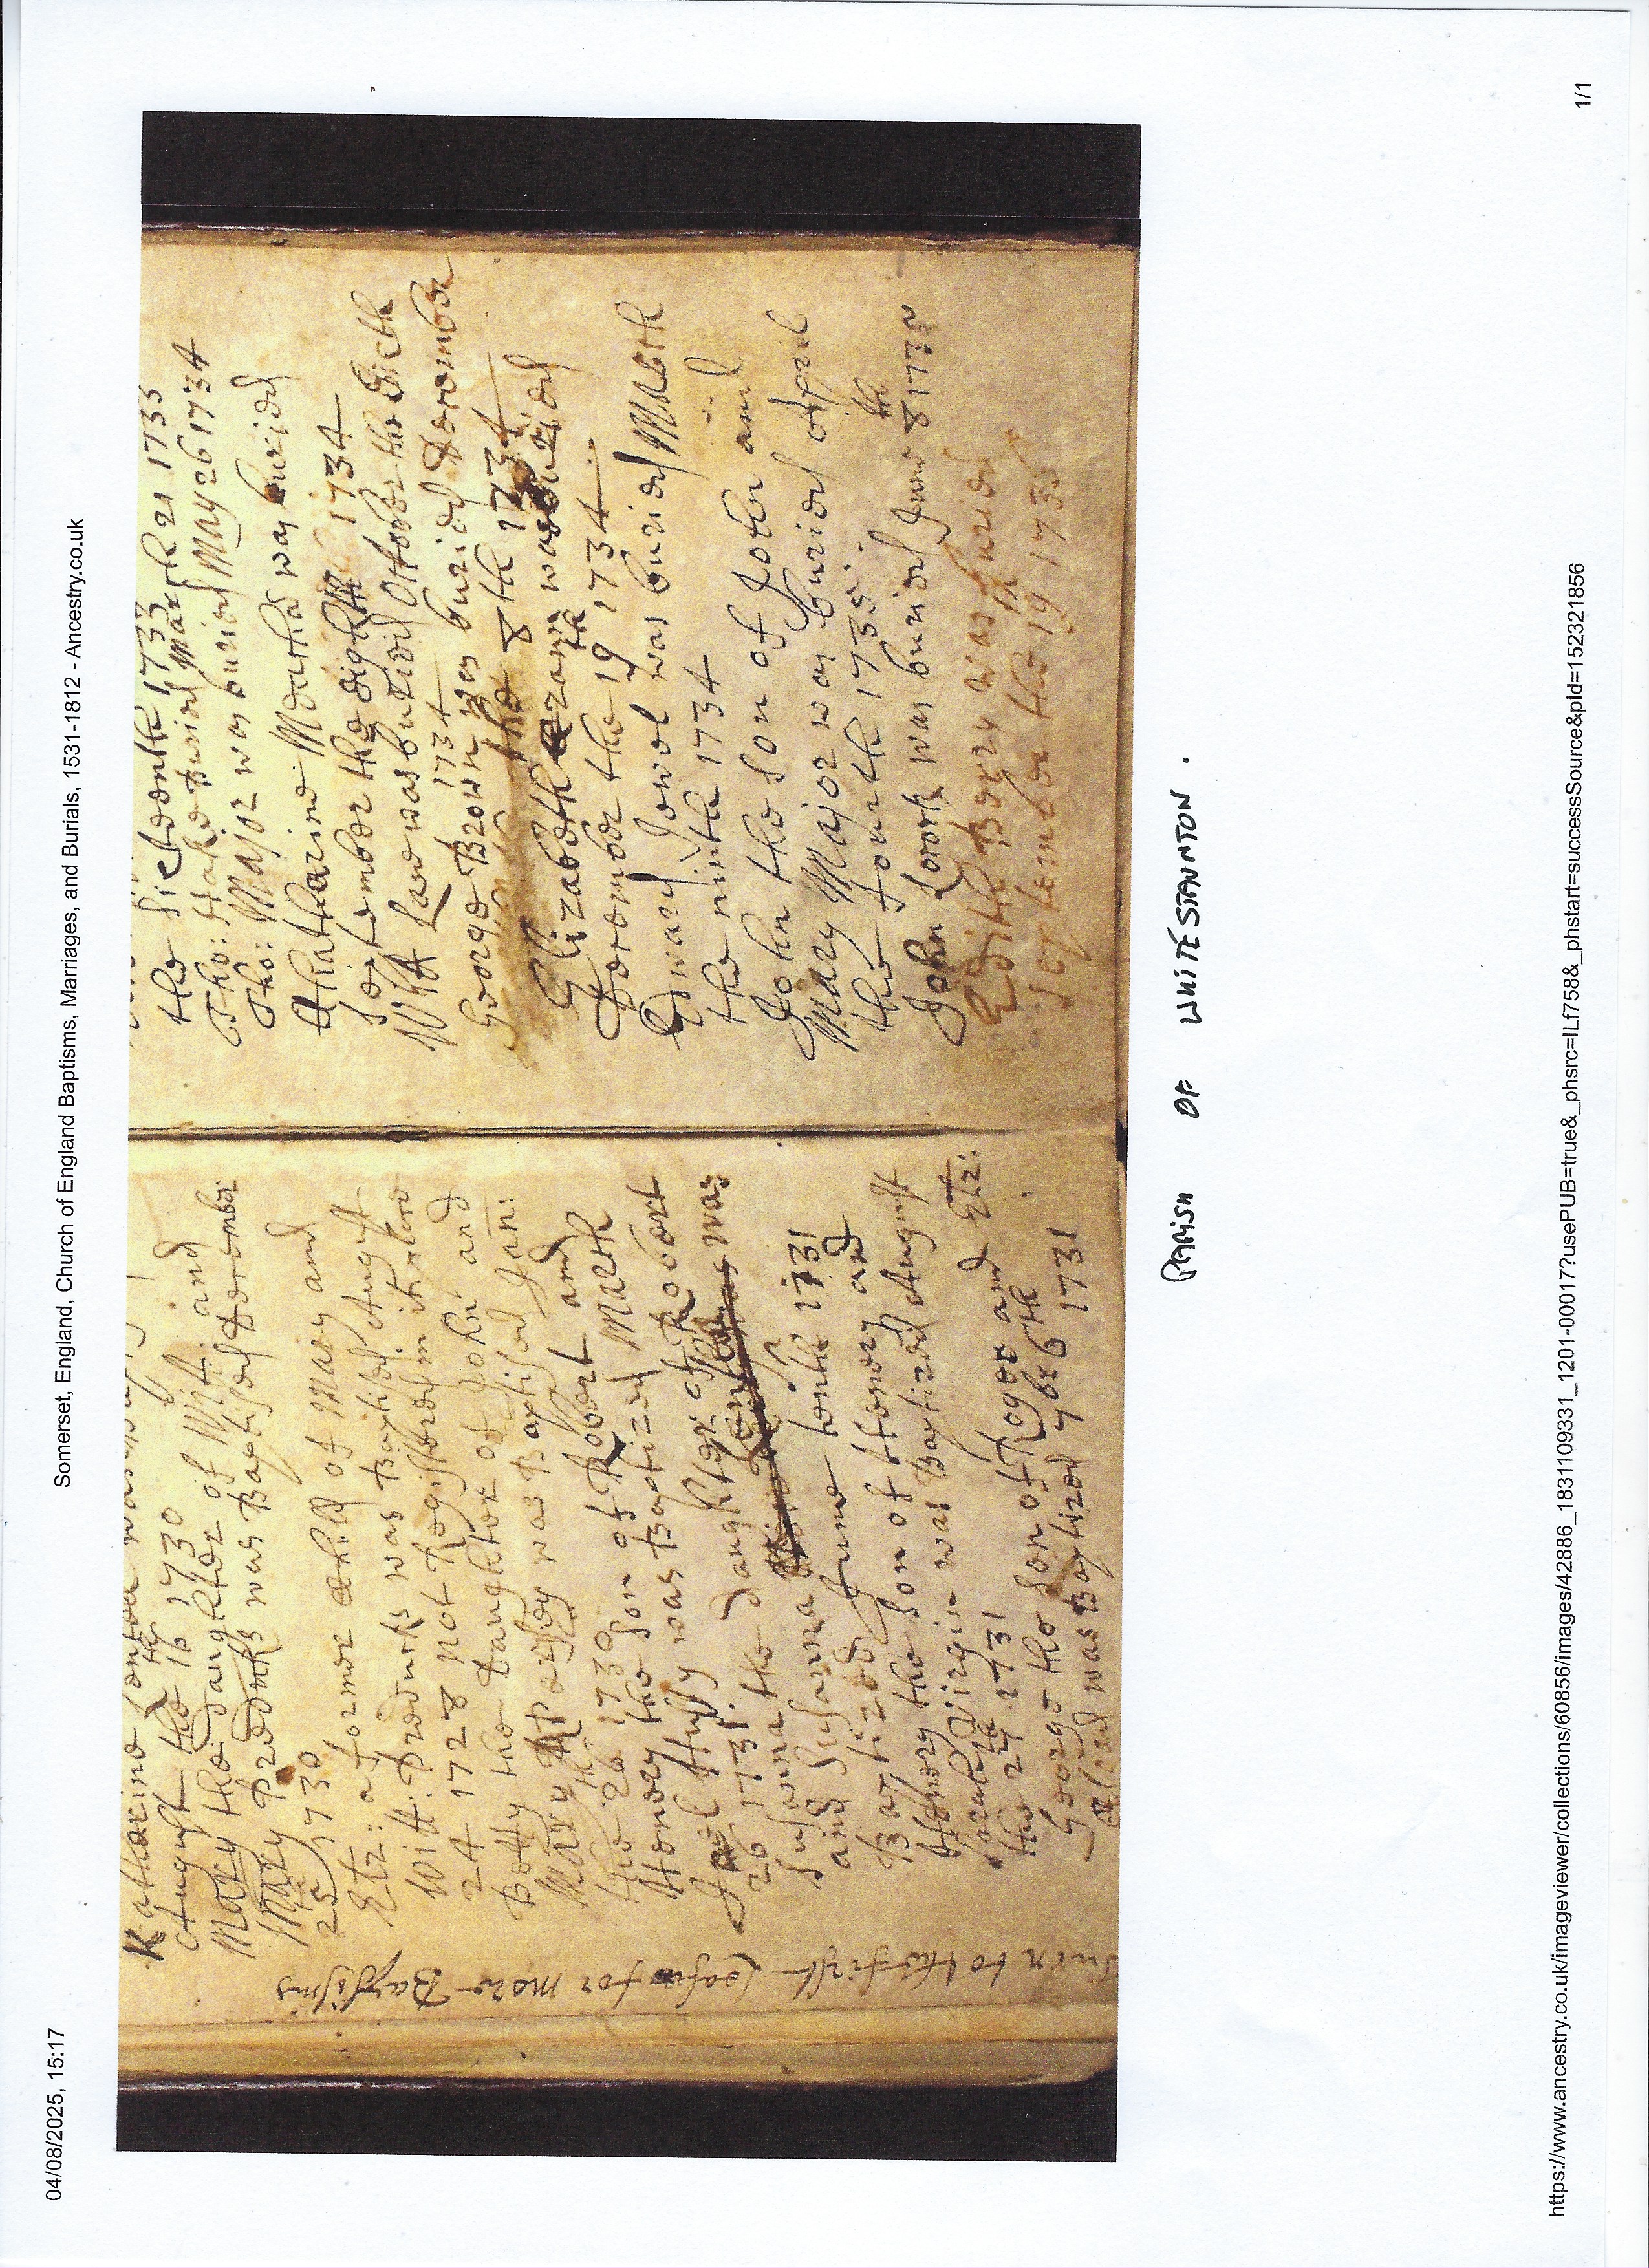 04/08/2025, 15:17
Somerset, England, Church of England Baptisms, Marriages, and Burials, 1531-1812 - Ancestry.co.uk
Katharine
August the 16th 1730
Mary the daughter of Will. and
Mary was Baptised December
25th 1730
Etz: a former Child of Mary and
Will. was Baptised August
24 1728 not Registered in its place
Betty the Daughter of John and
Mary was Baptised Jan:
the 26th 1730
Henery the Son of Robert and
Hussy was Baptized March
26 1731 the daughter of Robert
Susanna was
and Susanna
Baptized June tenth 1731
Henery the Son of Henery and
Sarah Virgin was Baptized August
the 24th 1731
George the Son of Roger and Etz:
was Baptized 7br 6th 1731
Turn to the first Leafe for more Baptisms
the Sicteenth 1733
Tho: Hake Buried March 21 1733
Tho: Major was buried May 26 1734
Katharine was buried
September the eighth 1734
Will Lane was buried October the Sicth
1734
George Brown was buried December
the 8th 1734
Elizabeth was buried
December the 19th 1734
Edward Jewel was buried March
the ninth 1734
John the Son of John and
Mary Major was buried April
the fourth 1735
John was buried June 8th 1735
Edith Bery was buried
September the 19th 1735
PARISH OF WHITESTAUNTON.
https://www.ancestry.co.uk/imageviewer/collections/60856/images/42886_1831109331_1201-00017?usePUB=true&_phsrc=ILf758&_phstart=successSource&pId=152321856
1/1